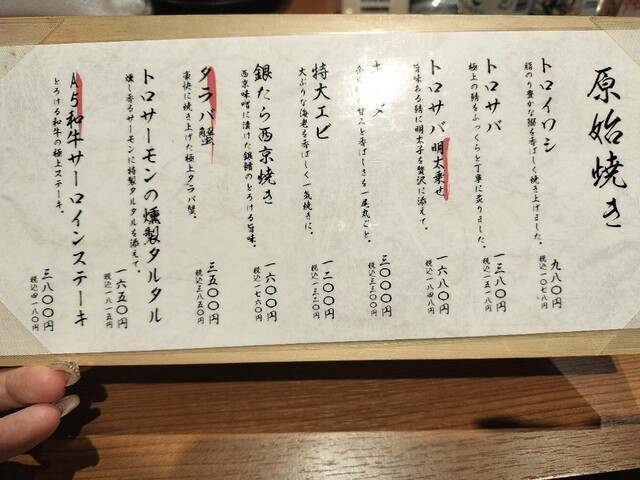 原始焼き
トロイワシ
脂のり豊かな鰯を香ばしく焼き上げました。
九八〇円
税込一〇七八円
トロサバ
極上の鯖をふっくらと丁寧に炙りました。
一三八〇円
税込一五一八円
トロサバ明太乗せ
旨味ある鯖に明太子を贅沢に添えて。
一六八〇円
税込一八四八円
甘みと香ばしさを一尾丸ごと。
三〇〇〇円
税込三三〇〇円
特大エビ
大ぶりな海老を香ばしく一気焼きに。
一二〇〇円
税込一三二〇円
銀だら西京焼き
西京味噌に漬けた銀鱈のとろける旨味。
一六〇〇円
税込一七六〇円
タラバ蟹
豪快に焼き上げた極上タラバ蟹。
三五〇〇円
税込三八五〇円
トロサーモンの燻製タルタル
燻し香るサーモンに特製タルタルを添えて。
一六五〇円
税込一八一五円
A5和牛サーロインステーキ
とろける和牛の極上ステーキ。
三八〇〇円
税込四一八〇円